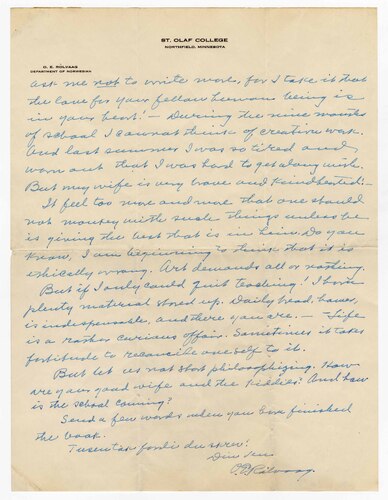 ST. OLAF COLLEGE
NORTHFIELD, MINNESOTA
O. E. ROLVAAG
DEPARTMENT OF NORWEGIAN
ask me not to write more, for I take it that
the love for your fellow human being is
in your heart! — During the nine months
of school I cannot think of creative work.
And last summer I was so tired and
worn out that I was hard to get along with.
But my wife is very brave and kindhearted. —
It feel too more and more that one should
not monkey with such things unless he
is giving the best that is in him. Do you
know, I am beginning to think that it is
ethically wrong. Art demands all or nothing.
But if I only could quit teaching! I have
plenty material stored up. Daily bread, however,
is indispensable, and there you are. — Life
is a rather curious affair. Sometimes it takes
fortitude to reconcile oneself to it.
But let us not start philosophizing. How
are your good wife and the kiddies? And how
is the school coming?
Send a few words when you have finished
the book.
Tusen tak fordi du skrev!
Din ven
O. E. Rölvaag.